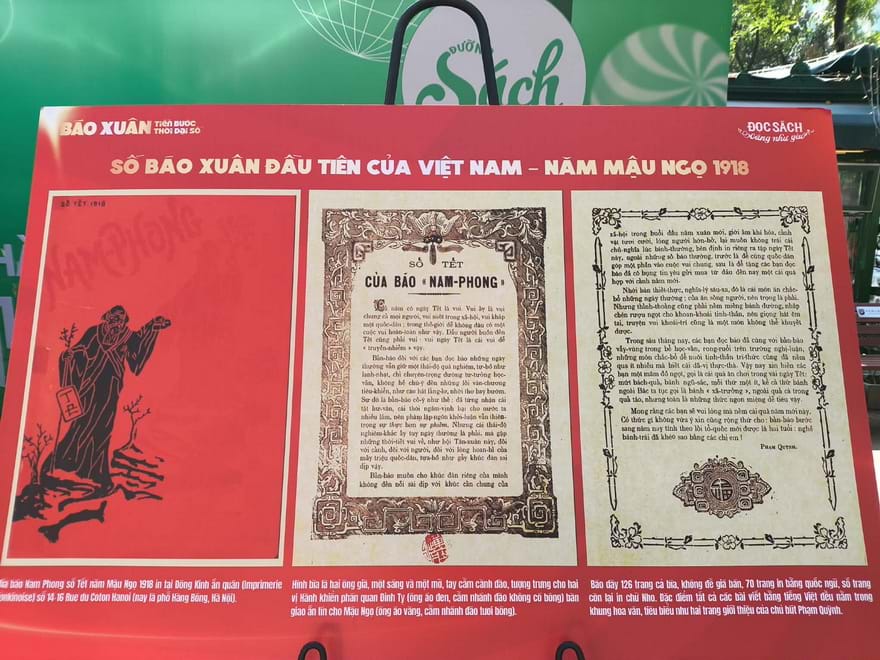 ĐƯỜNG
Sách
BÁO XUÂN TIẾN BƯỚC
THỜI ĐẠI SỐ
ĐỌC SÁCH
SỐ BÁO XUÂN ĐẦU TIÊN CỦA VIỆT NAM – NĂM MẬU NGỌ 1918
SỐ TẾT 1918
SỐ TẾT
CỦA BÁO «NAM-PHONG»
Cả năm có ngày Tết là vui. Vui ấy là vui
chung cả mọi người, vui suốt trong xã-hội, vui khắp
một quốc-dân; trong thế-giới dễ không đâu có một
cuộc vui hoàn-toàn như vậy. Dẫu người buồn đến
Tết cũng phải vui: vui ngày Tết là cái vui dễ
« truyền-nhiễm » vậy.
Bản-báo đối với các bạn đọc báo những ngày
thường vẫn giữ một thái-độ quá nghiêm, tự-hồ như
lãnh-nhạt, chỉ chuyên-trọng đường tư-tưởng học-
vấn, không hề chú-ý đến những lời văn-chương
tiêu-khiển, như câu hát lẳng-lơ, nhời thơ hay bướm.
Sự đó là bản-báo cố-ý như thế: đã từng nhận cái
tật hư-văn, cái thói ngâm-vịnh hại cho nước ta
nhiều lắm, nên phàm lập-ngôn khởi-luận vẫn thiên-
trọng sự thực hơn sự phiếm. Nhưng cái thái-độ
nghiêm-khắc ấy tuy ngày thường là phải, mà gặp
những thời-tiết vui vẻ, như hội Tân-xuân này, đối
với cảnh, đối với người, đối với lòng hoan-hỉ của
mấy triệu quốc-dân, tựa-hồ như gẩy khúc đàn sai
dịp vậy.
Bản-báo muốn cho khúc đàn riêng của mình
không đến nỗi sai dịp với khúc cần chung của
xã-hội trong buổi đầu năm xuân mới, giời ấm khí hòa, cảnh
vật tươi cười, lòng người hớn-hở, lại muốn không trái cái
chủ-nghĩa lúc bình-thường, bèn định in riêng ra tập ngày Tết
này, ngoài những số báo thường, trước là để cùng quốc-dân
góp một phần vào cuộc vui chung, sau là để tặng các bạn đọc
báo đã có bụng tin yêu gởi mua từ đầu đến nay một cái quà
hợp với cảnh năm mới.
Nhời bàn thiết-thực, nghĩa-lý sâu-xa, đó là cái món ăn chắc-
bổ những ngày thường; của ăn sống người, nên trọng là phải.
Nhưng thỉnh-thoảng cũng phải nếm miếng bánh đường, nhắp
chén rượu ngọt cho khoan-khoái tinh-thần, nên giọng hát êm
tai, truyện vui khoái-trí cũng là một món không thể khuyết
được.
Trong sáu tháng nay, các bạn đọc báo đã cùng với bản-báo
vẫy-vùng trong bể học-vấn, rong-ruổi trên trường nghị-luận,
những món chắc-bổ để nuôi tinh-thần trí-thức cũng đã nếm
qua ít nhiều mà biết cái dã-vị thực-thà. Vậy nay xin hiến các
bạn một mâm đồ ngọt, gọi là cái quà ăn chơi trong vài ngày Tết:
mứt bách-quả, bánh ngũ-sắc, mỗi thứ một ít, kể cả thứ bánh
ngoài Bắc ta tục gọi là bánh « xã-trưởng », ngoài quả cả trong
quả táo, nhưng toàn là những thức ngon miệng dễ tiêu vậy.
Mong rằng các bạn sẽ vui lòng mà nếm cái quà năm mới này.
Có thức gì không vừa ý xin cũng rộng thứ cho: bản-báo bước
sang năm nay tính theo lối tổ-quốc mới được là hai tuổi: nghề
bánh-trái đã khéo sao bằng các chị em!
PHẠM QUỲNH.
bìa báo Nam Phong số Tết năm Mậu Ngọ 1918 in tại Đông Kinh ấn quán (Imprimerie
Tonkinoise) số 14-16 Rue du Coton Hanoi (nay là phố Hàng Bông, Hà Nội).
Hình bìa là hai ông già, một sáng và một mờ, tay cầm cành đào, tượng trưng cho hai
vị Hành khiển phán quan Đinh Tỵ (ông áo đen, cầm nhánh đào không có bông) bàn
giao ấn tín cho Mậu Ngọ (ông áo vàng, cầm nhánh đào tươi bông).
Báo dày 126 trang cả bìa, không đề giá bán, 70 trang in bằng quốc ngữ, số trang
còn lại in chữ Nho. Đặc điểm tất cả các bài viết bằng tiếng Việt đều nằm trong
khung hoa văn, tiêu biểu như hai trang giới thiệu của chủ bút Phạm Quỳnh.